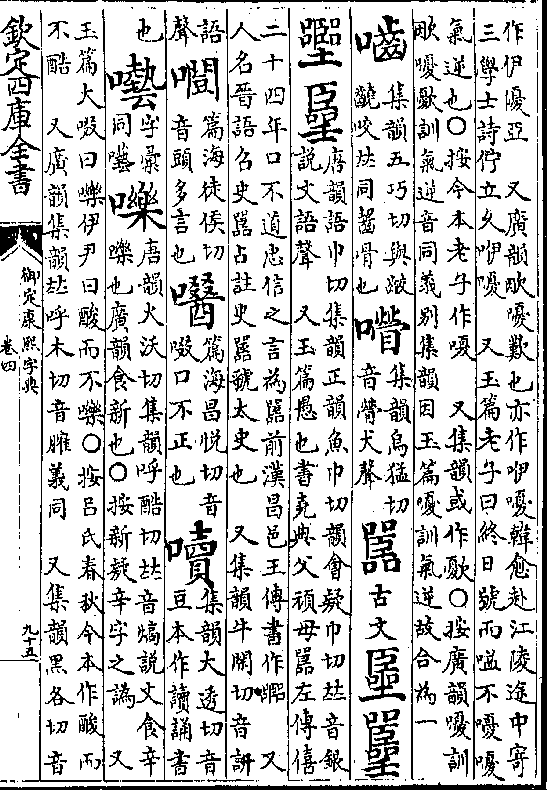 作伊優亞　又廣韻歐嚘歎也亦作咿嚘韓愈赴江陵途中寄
三學士詩佇立久咿嚘　又玉篇老子曰終日號而嗌不嚘嚘
氣逆也○按今本老子作嗄　又集韻或作歐○按廣韻嚘訓
歐嚘歎訓氣逆音同義別集韻因玉篇嚘訓氣逆故合為一
嚙集韻五巧切與齩
齩咬𠀤同齧骨也
集韻烏猛切
音𦡮犬聲
嚚古文
唐韻語巾切集韻正韻魚巾切韻會疑巾切𠀤音銀
說文語聲　又玉篇愚也書堯典父頑母嚚左傳僖
二十四年口不道忠信之言為嚚前漢昌邑王傳書作　又
人名晉語名史嚚占註史嚚虢太史也　又集韻牛閑切音訮
語聲
篇海徒侯切
音頭多言也
篇海昌悅切音
啜口不正也
嚽集韻大透切音
豆本作讀誦書
也
囈字彙
同囈
嚛唐韻火沃切集韻呼酷切𠀤音熇說文食辛
嚛也廣韻食新也○按新疑辛字之譌　又
玉篇大啜曰嚛伊尹曰酸而不嚛○按呂氏春秋今本作酸而
不酷　又廣韻集韻𠀤呼木切音臛義同　又集韻黑各切音
欽定四庫全書
御定康熙字典
卷四
九十五